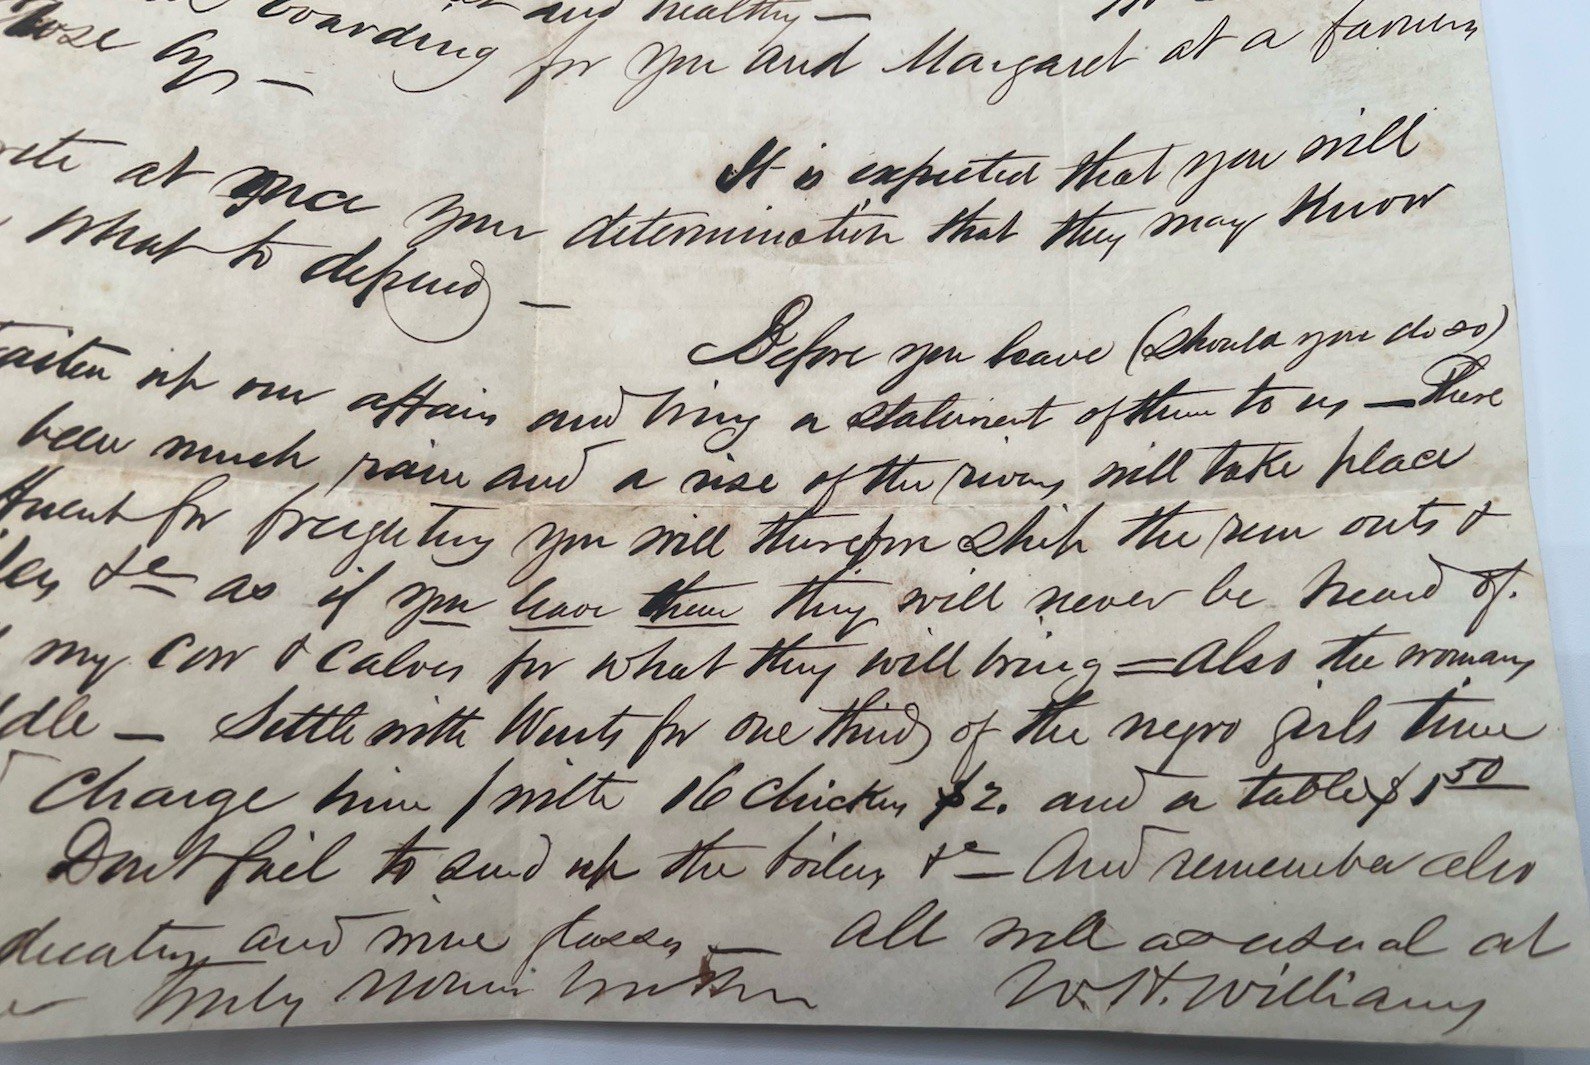 and healthy —
boarding for you and Margaret at a farmers
close by —
It is expected that you will
at once your determination that they may know
what to depend —
Before you leave (should you do so)
up our affairs and bring a statement of them to us — There
been much rain and a rise of the rivers will take place
for freighting you will therefore ship the rum oats &
&c as if you leave them they will never be heard of.
my cow & calves for what they will bring = also the womans
— Settle with Wents for one third of the negro girls time
charge him / with 16 chickens $2. and a table $1 50
Dont fail to send up the boilers &c — And remember also
and wine glasses — All well as usual at
Truly Your brother W. H. Williams